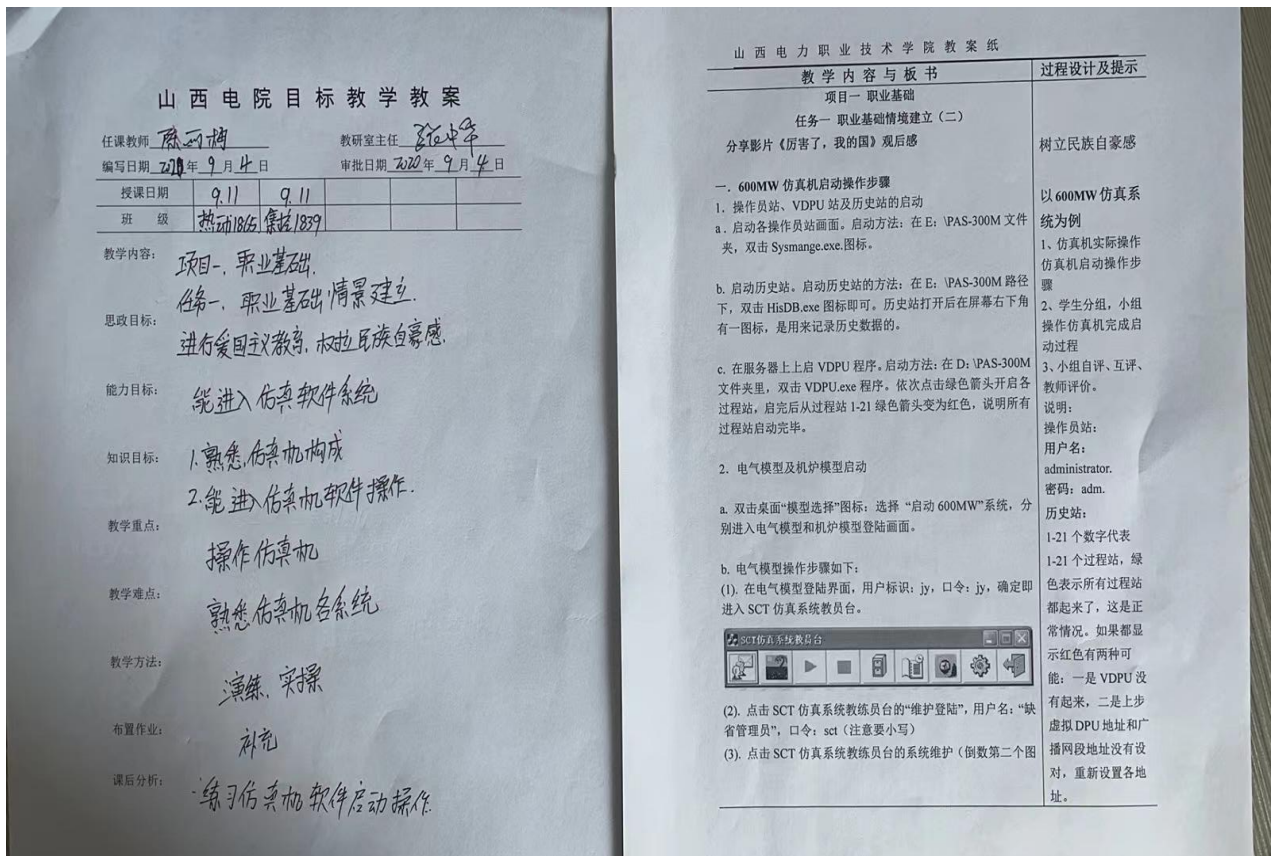 山西电院目标教学教案
任课教师 教研室主任
编写日期 年 9 月 4 日 审批日期 2020 年 9 月 4 日
授课日期 9.11 9.11
班 级 热动1865 集控1839
教学内容:
项目一、职业基础.
任务一、职业基础情景建立.
思政目标:
进行爱国主义教育,树立民族自豪感.
能力目标:
能进入仿真软件系统
知识目标:
1.熟悉仿真机构成
2.能进入仿真机软件操作.
教学重点:
操作仿真机
教学难点:
熟悉仿真机各系统
教学方法:
演练、实操
布置作业:
补充
课后分析:
练习仿真机软件启动操作.
山西电力职业技术学院教案纸
教学内容与板书
项目一 职业基础
任务一 职业基础情境建立(二)
分享影片《厉害了,我的国》观后感
一.600MW 仿真机启动操作步骤
1. 操作员站、VDPU 站及历史站的启动
a . 启动各操作员站画面。启动方法:在 E:\PAS-300M 文件
夹,双击 Sysmange.exe.图标。
b. 启动历史站。启动历史站的方法:在 E:\PAS-300M 路径
下,双击 HisDB.exe 图标即可。历史站打开后在屏幕右下角
有一图标,是用来记录历史数据的。
c. 在服务器上上启 VDPU 程序。启动方法:在 D:\PAS-300M
文件夹里,双击 VDPU.exe 程序。依次点击绿色箭头开启各
过程站,启完后从过程站 1-21 绿色箭头变为红色,说明所有
过程站启动完毕。
2. 电气模型及机炉模型启动
a. 双击桌面“模型选择”图标:选择 “启动 600MW”系统,分
别进入电气模型和机炉模型登陆画面。
b. 电气模型操作步骤如下:
(1). 在电气模型登陆界面,用户标识:jy,口令:jy,确定即
进入 SCT 仿真系统教员台。
SCT仿真系统教员台
(2). 点击 SCT 仿真系统教练员台的“维护登陆”,用户名:“缺
省管理员”,口令:sct(注意要小写)
(3). 点击 SCT 仿真系统教练员台的系统维护(倒数第二个图
过程设计及提示
树立民族自豪感
以 600MW 仿真系
统为例
1、仿真机实际操作
仿真机启动操作步
骤
2、学生分组,小组
操作仿真机完成启
动过程
3、小组自评、互评、
教师评价。
说明:
操作员站:
用户名:
administrator.
密码:adm.
历史站:
1-21 个数字代表
1-21 个过程站,绿
色表示所有过程站
都起来了,这是正
常情况。如果都显
示红色有两种可
能:一是 VDPU 没
有起来,二是上步
虚拟 DPU 地址和广
播网段地址没有设
对,重新设置各地
址。